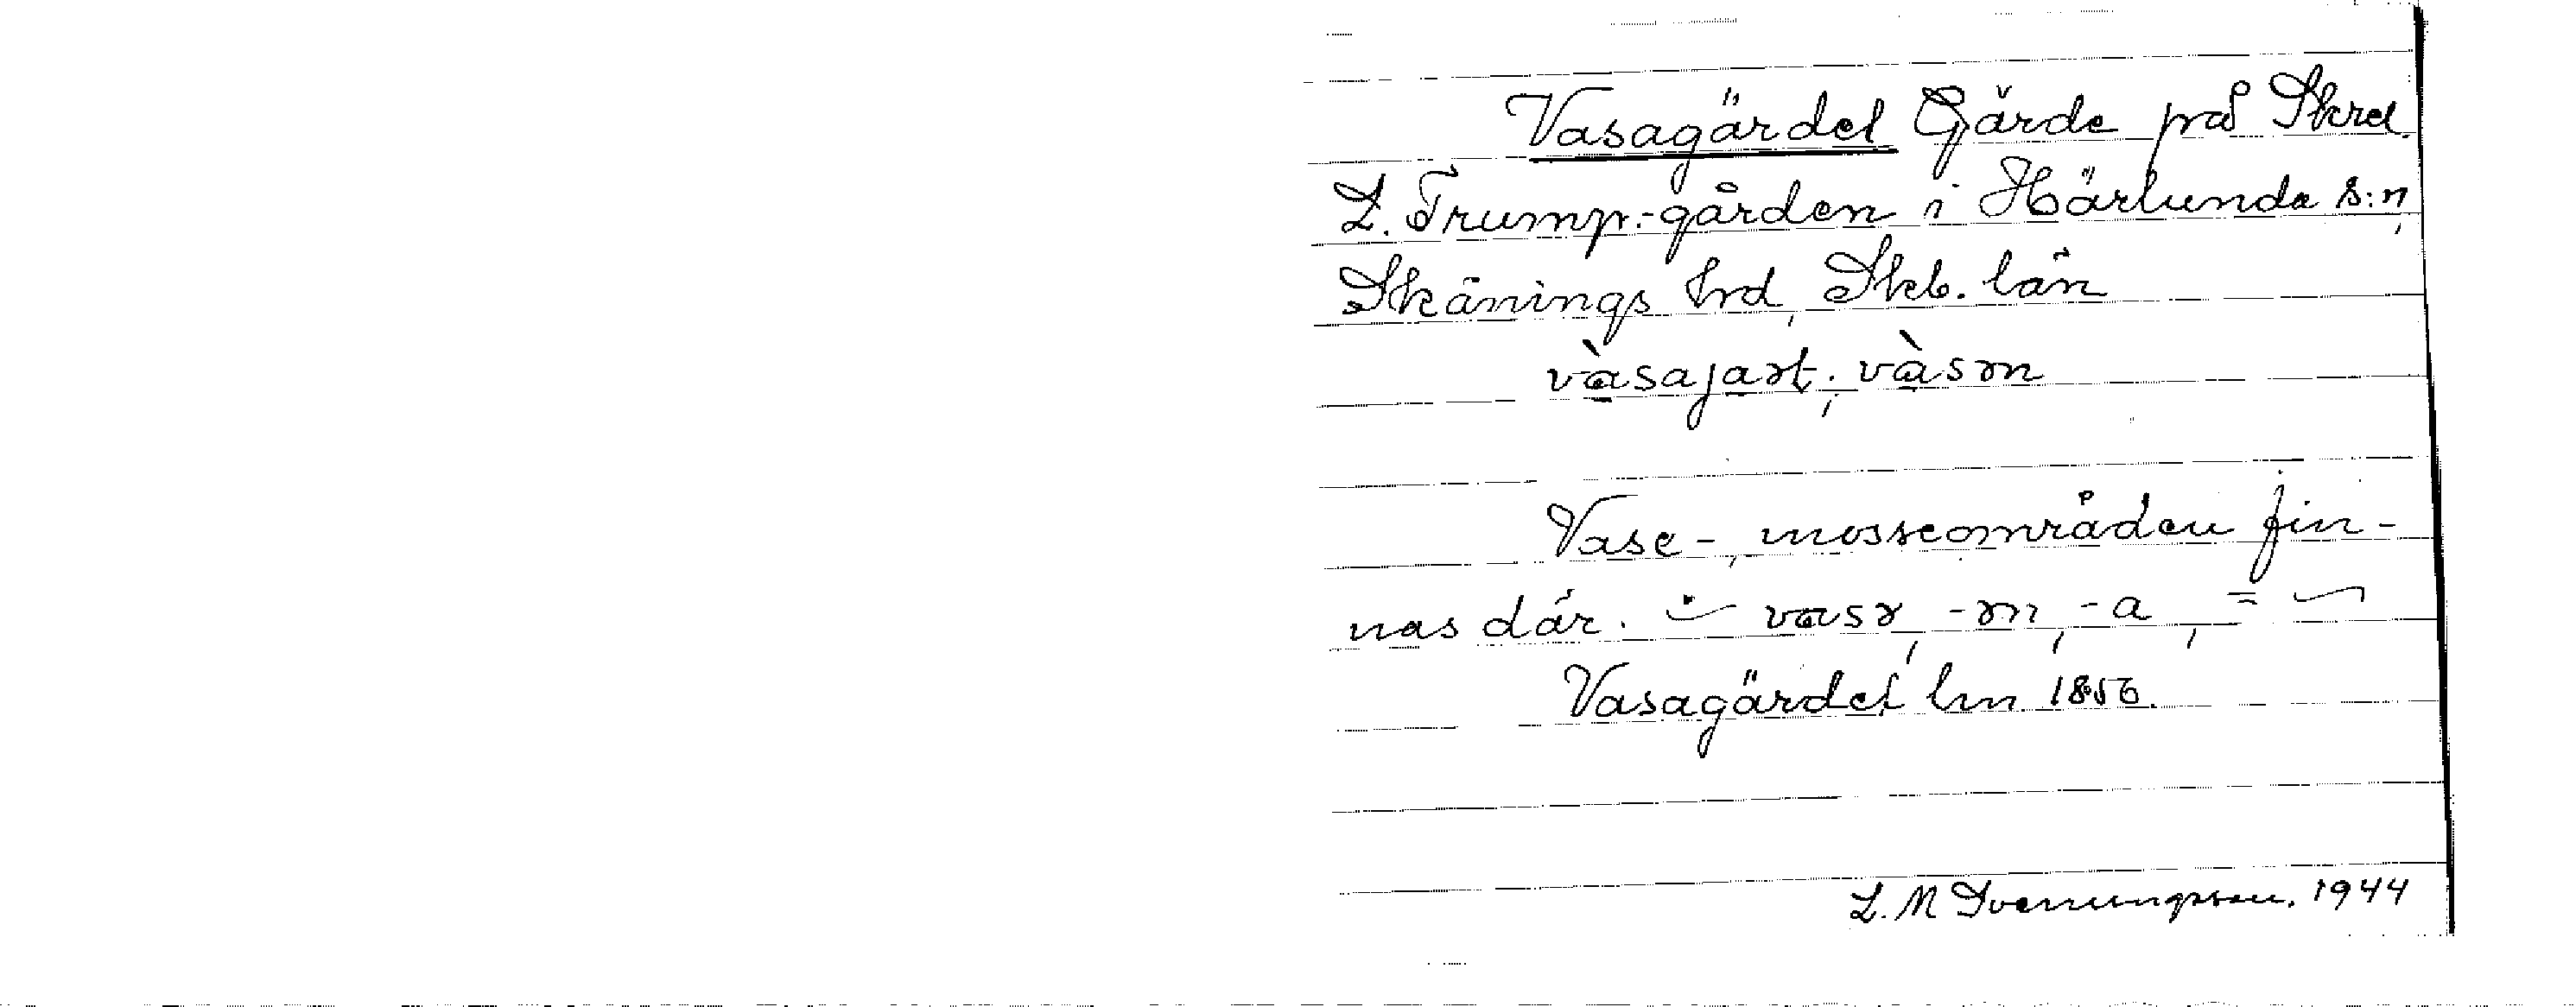 Vasagärdet Gärde på Skrd.
L. Trump.-gården i Härlunda s:n,
Skånings hrd, Skb. län
vàsajaɤt; vàsɤn
Vase-, mosseområden fin-
nas där. vasɤ, -ɤn, -a, =
Vasagärdet hm 1856.
L. M Svenungsson. 1944